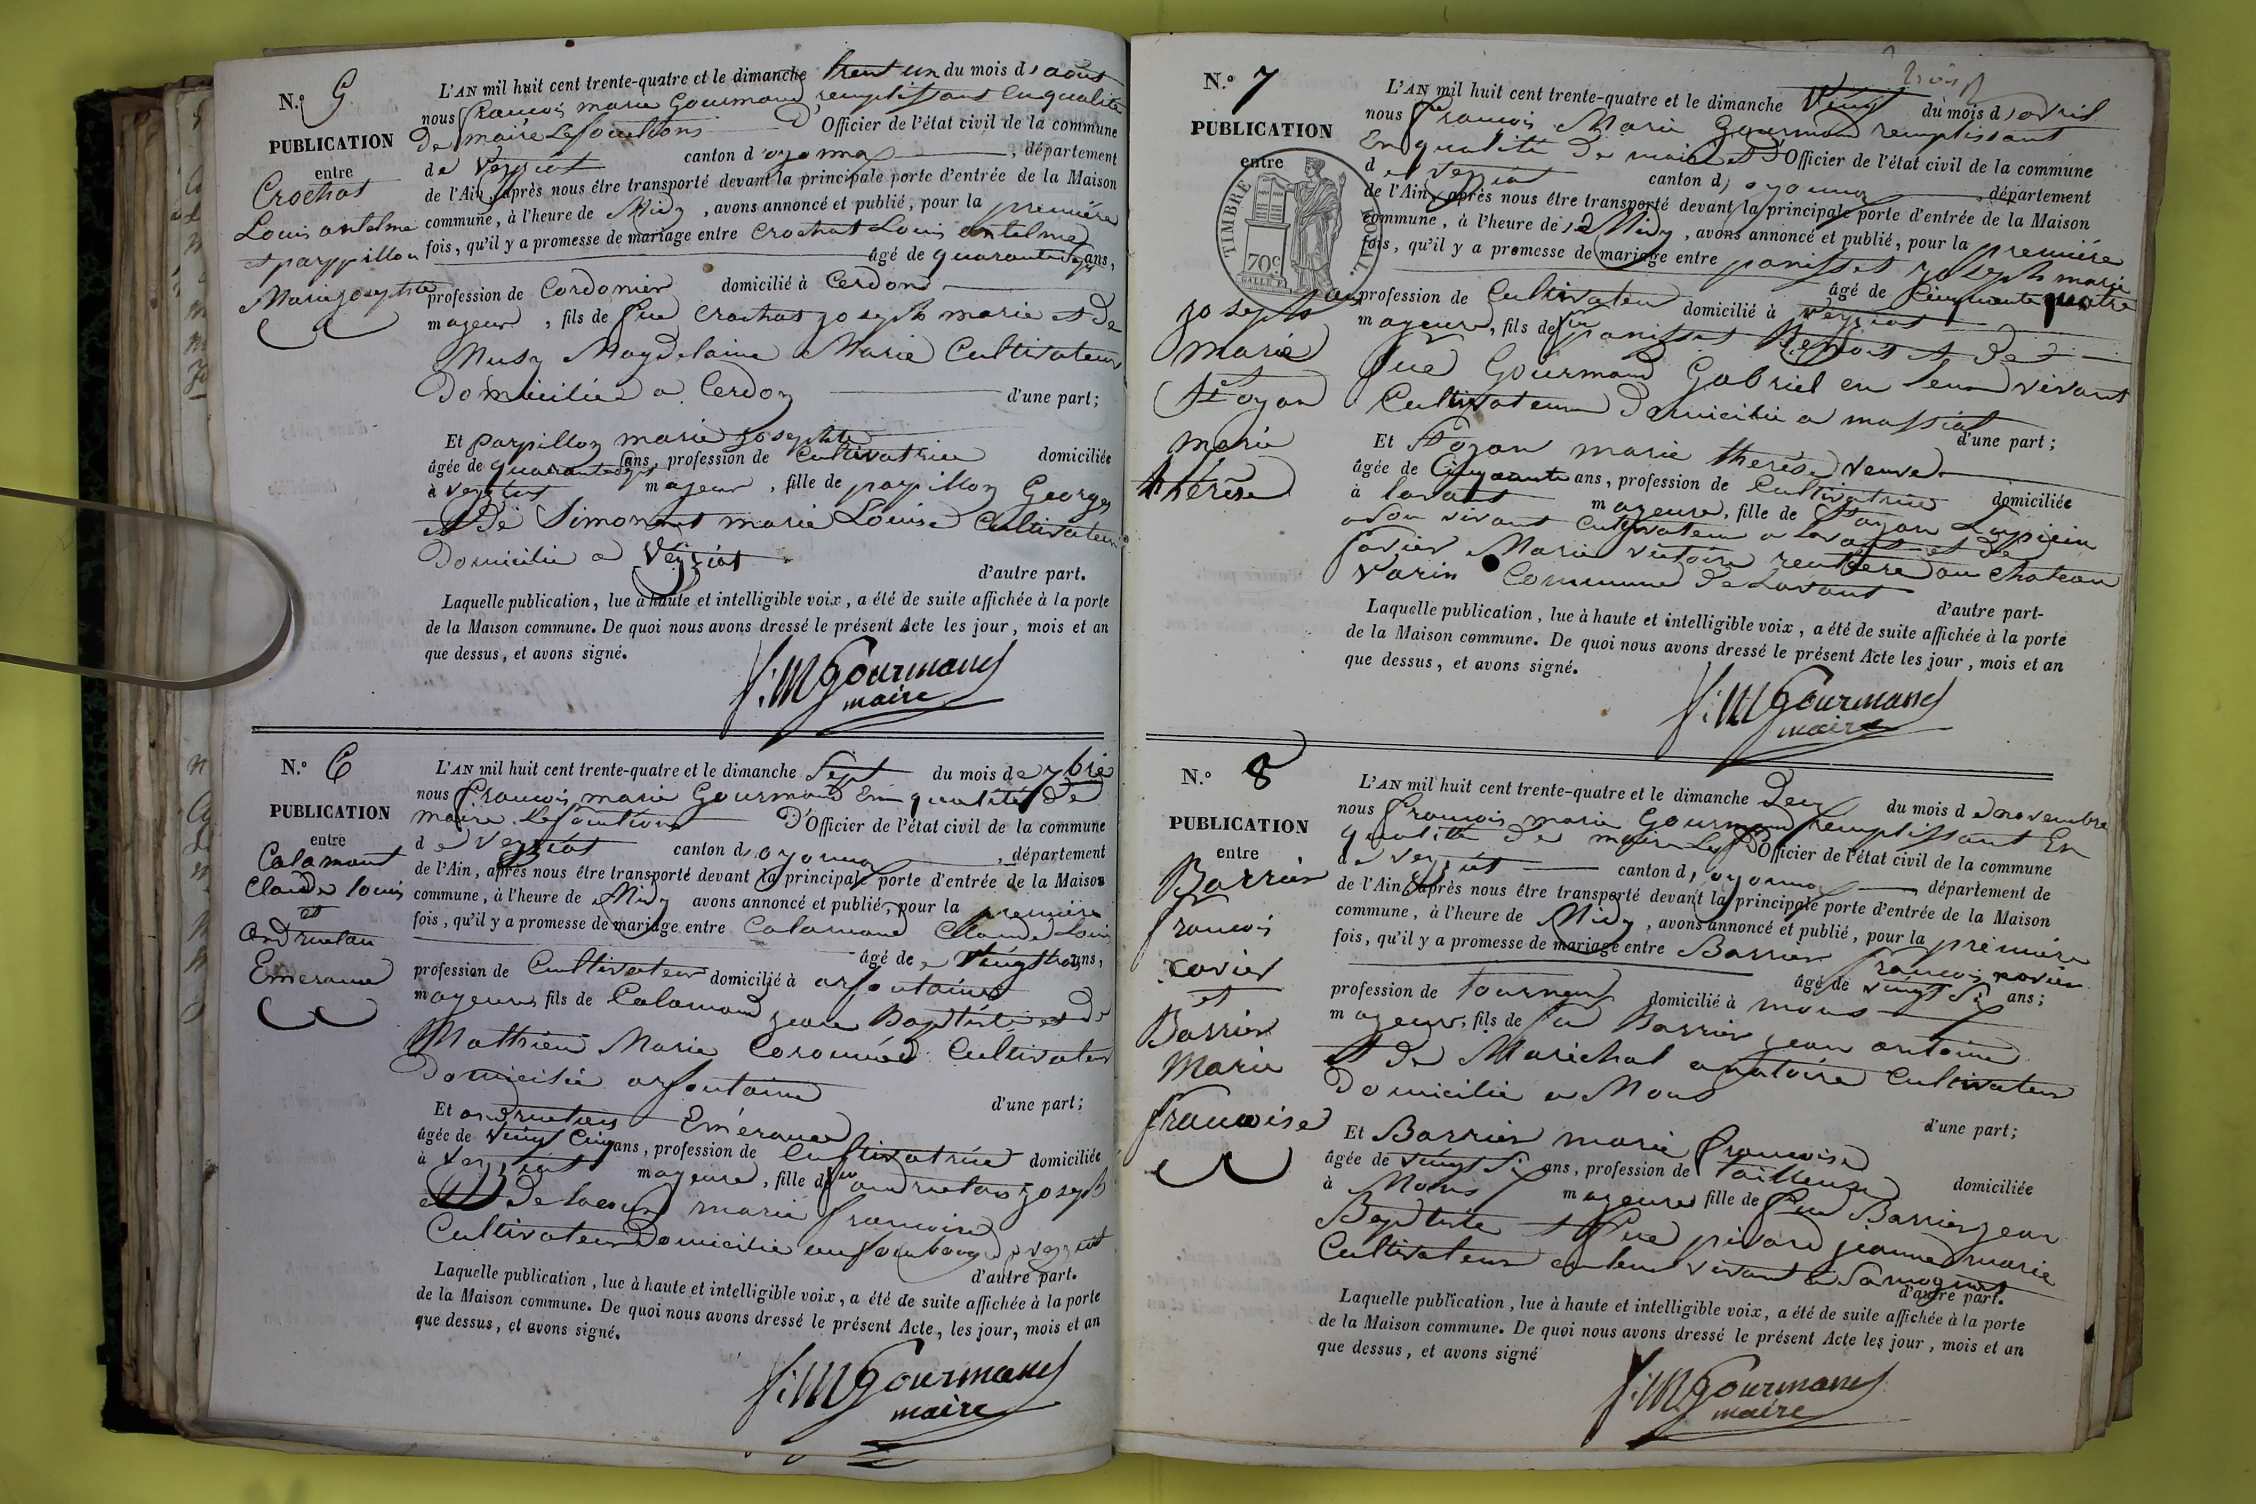 N.o 5
PUBLICATION
entre
Crochat
Louis antelme
et parpillon
Marie josephte
L'AN mil huit cent trente-quatre et le dimanche trent un du mois d'août
nous francois marie Gourmand remplissant en qualité
de maire les fonctions D'Officier de l'état civil de la commune
de veyziat canton d'oyonnax, département
de l'Ain, après nous être transporté devant la principale porte d'entrée de la Maison
commune, à l'heure de Midy, avons annoncé et publié, pour la première
fois, qu'il y a promesse de mariage entre Crochat Louis antelme
âgé de quarante ans,
profession de Cordonier domicilié à Cerdon
majeur, fils de feu Crochat joseph marie et de
Musy Magdelaine Marie Cultivateur
Domiciliée a Cerdon d'une part;
Et parpillon marie josephte
âgée de quarante ans, profession de Cultivatrice domiciliée
à veyziat majeur, fille de parpillon Georges
et De Simonnet marie Louise Cultivateur
Domicilié a Veyziat
d'autre part.
Laquelle publication, lue à haute et intelligible voix, a été de suite affichée à la porte
de la Maison commune. De quoi nous avons dressé le présent Acte les jour, mois et an
que dessus, et avons signé.
f: M Gourmand
maire
N.o 6
PUBLICATION
entre
Calamand
Claude louis
et
andruetan
Emerance
L'AN mil huit cent trente-quatre et le dimanche Sept du mois de 7bre
nous francois marie Gourmand En qualité de
maire les fonctions D'Officier de l'état civil de la commune
de Veyziat canton d'oyonnax, département
de l'Ain, après nous être transporté devant la principale porte d'entrée de la Maison
commune, à l'heure de Midy avons annoncé et publié, pour la première
fois, qu'il y a promesse de mariage entre Calamand Claude Louis
âgé de vingt trois ans,
profession de Cultivateur domicilié à arfontaine
majeure, fils de Calamand jean Baptiste et de
Mathieu Marie Cultivateur
domicilié arfontaine
d'une part;
Et andruetan Emérance
âgée de vingt Cinq ans, profession de Cultivatrice domiciliée
à veyziat majeure, fille de feu andruetan joseph
et De lacour marie francoise
Cultivateur Domicilié au faubourg a veyziat
d'autre part.
Laquelle publication, lue à haute et intelligible voix, a été de suite affichée à la porte
de la Maison commune. De quoi nous avons dressé le présent Acte, les jour, mois et an
que dessus, et avons signé.
f: M Gourmand
maire
N.o 7
PUBLICATION
entre
TIMBRE ROYAL.
70c
joseph
marie
et
marie
thérèse
L'AN mil huit cent trente-quatre et le dimanche Vingt du mois d'avril
trois
nous francois Marie Gourmand remplissant
En qualité de maire D'Officier de l'état civil de la commune
de veyziat canton d'oyonnax, département
de l'Ain, après nous être transporté devant la principale porte d'entrée de la Maison
commune, à l'heure de Midy, avons annoncé et publié, pour la première
fois, qu'il y a promesse de mariage entre panisset joseph marie
âgé de Cinquante quatre
ans profession de Cultivateur domicilié à veyziat
majeure, fils de feu panisset Benoit et de
feue Gourmand Gabriel en leur vivant
Cultivateur Domicilié a massiat
d'une part;
Et marie thérèse veuve
âgée de Cinquante ans, profession de Cultivatrice domiciliée
à lavant majeure, fille de Lupicin
a son vivant Cultivateur a lavant et de
favier Marie victoire rentière au Chateau
Varin Commune de Lavant
d'autre part-
Laquelle publication, lue à haute et intelligible voix, a été de suite affichée à la porte
de la Maison commune. De quoi nous avons dressé le présent Acte les jour, mois et an
que dessus, et avons signé.
f: M Gourmand
maire
N.o 8
PUBLICATION
entre
Barrier
francois
xavier
et
Barrier
Marie
francoise
L'AN mil huit cent trente-quatre et le dimanche Deux du mois de novembre
nous francois marie Gourmand remplissant En
qualité de maire Les D'Officier de l'état civil de la commune
de veyziat canton d'oyonnax département de
de l'Ain après nous être transporté devant la principale porte d'entrée de la Maison
commune, à l'heure de Midy, avons annoncé et publié, pour la première
fois, qu'il y a promesse de mariage entre Barrier francois xavier
âgé de vingt Six ans;
profession de tourneur domicilié à mons
majeur, fils de feu Barrier jean antoine
et de Maréchal anatoire Cultivateur
Domicilié a Mons
d'une part;
Et Barrier marie francoise
âgée de vingt Six ans, profession de tailleuse domiciliée
à Mons majeure fille de feu Barrier jean
Baptiste et feue pivard jeanne marie
Cultivateur en leur vivant à Samognat
d'autre part.
Laquelle publication, lue à haute et intelligible voix, a été de suite affichée à la porte
de la Maison commune. De quoi nous avons dressé le présent Acte les jour, mois et an
que dessus, et avons signé
f: M Gourmand
maire